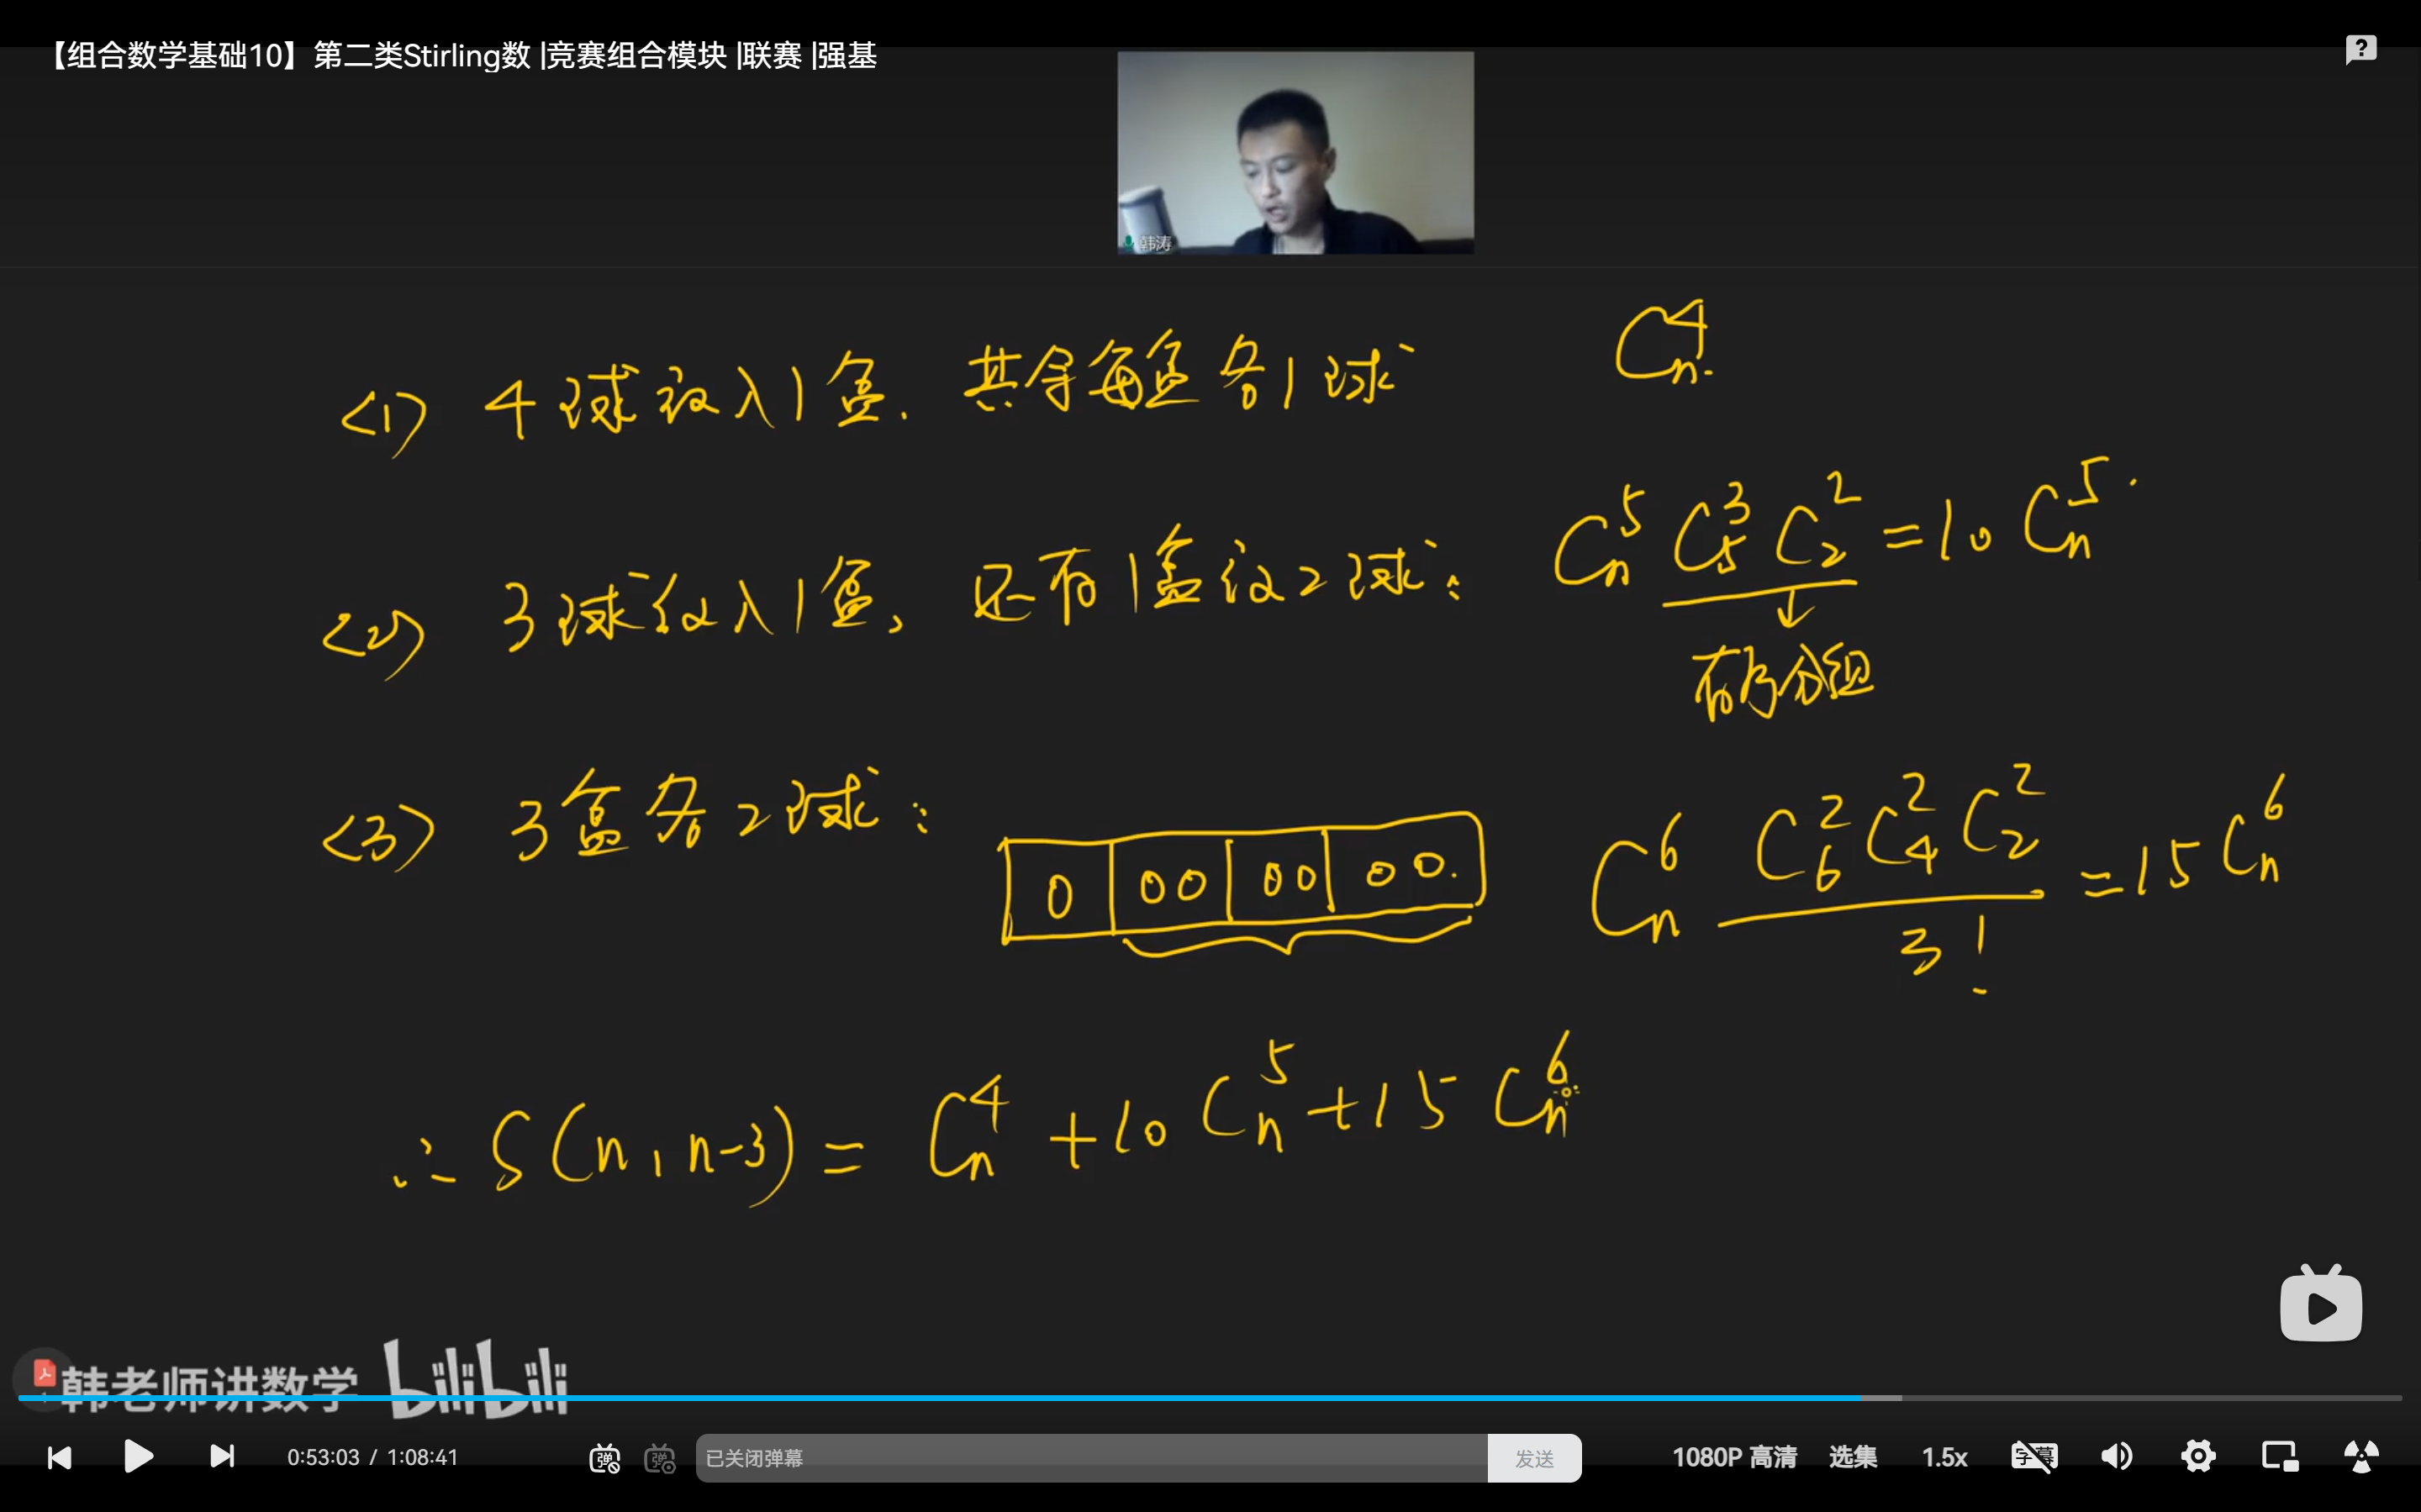 【组合数学基础10】第二类Stirling数 |竞赛组合模块 |联赛 |强基
韩涛
<1> 4球放入1盒. 其余每盒各1球 C_n^4.
<2> 3球放入1盒, 还有1盒放2球: C_n^5 C_5^3 C_2^2 = 10 C_n^5.
↓
有码分组
<3> 3盒各2球: 0 00 00 00. C_n^6 C_6^2 C_4^2 C_2^2 / 3! = 15 C_n^6
∴ S(n, n-3) = C_n^4 + 10 C_n^5 + 15 C_n^6
韩老师讲数学 bilibili
0:53:03 / 1:08:41 弹 弹 已关闭弹幕 发送 1080P 高清 选集 1.5x 字幕